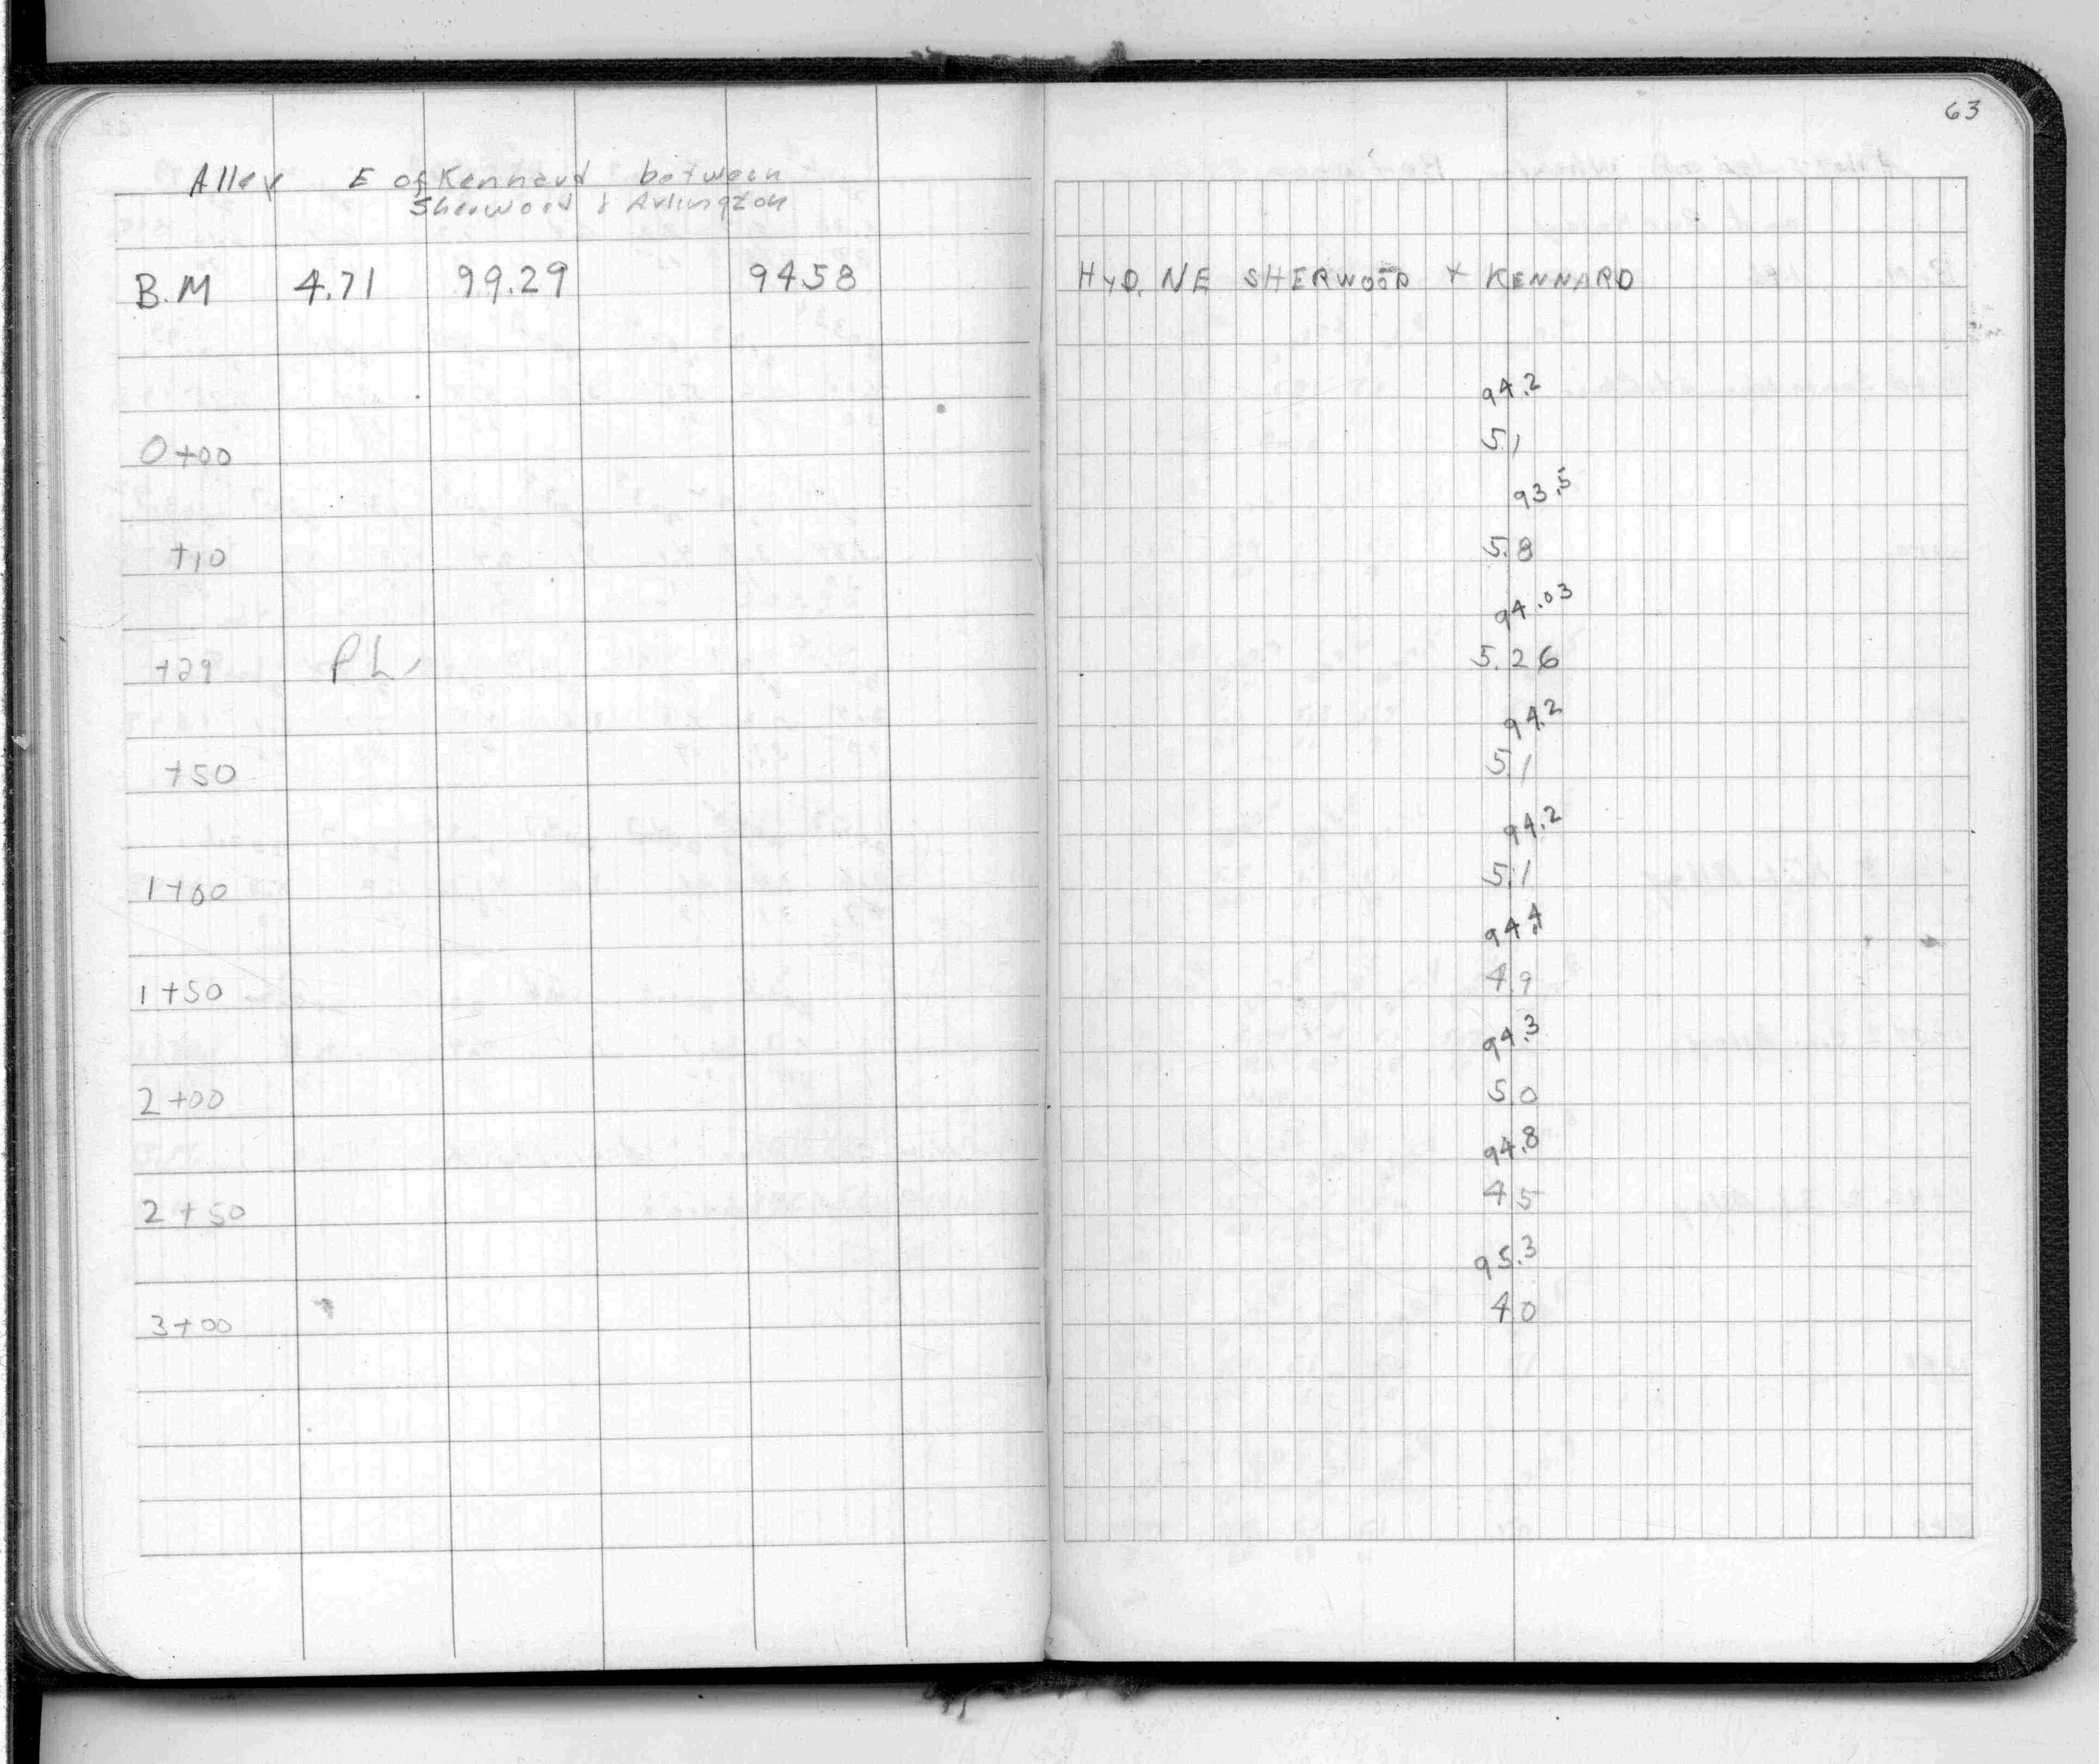 63
Alley E of Kennard between
Sherwood & Arlington
B.M 4.71 99.29 94.58 HYD. NE SHERWOOD + KENNARD
94.2
0+00 5.1
93.5
+10 5.8
94.03
+29 P.L. 5.26
94.2
+50 5.1
94.2
1+00 5.1
94.4
1+50 4.9
94.3
2+00 5.0
94.8
2+50 4.5
95.3
3+00 4.0